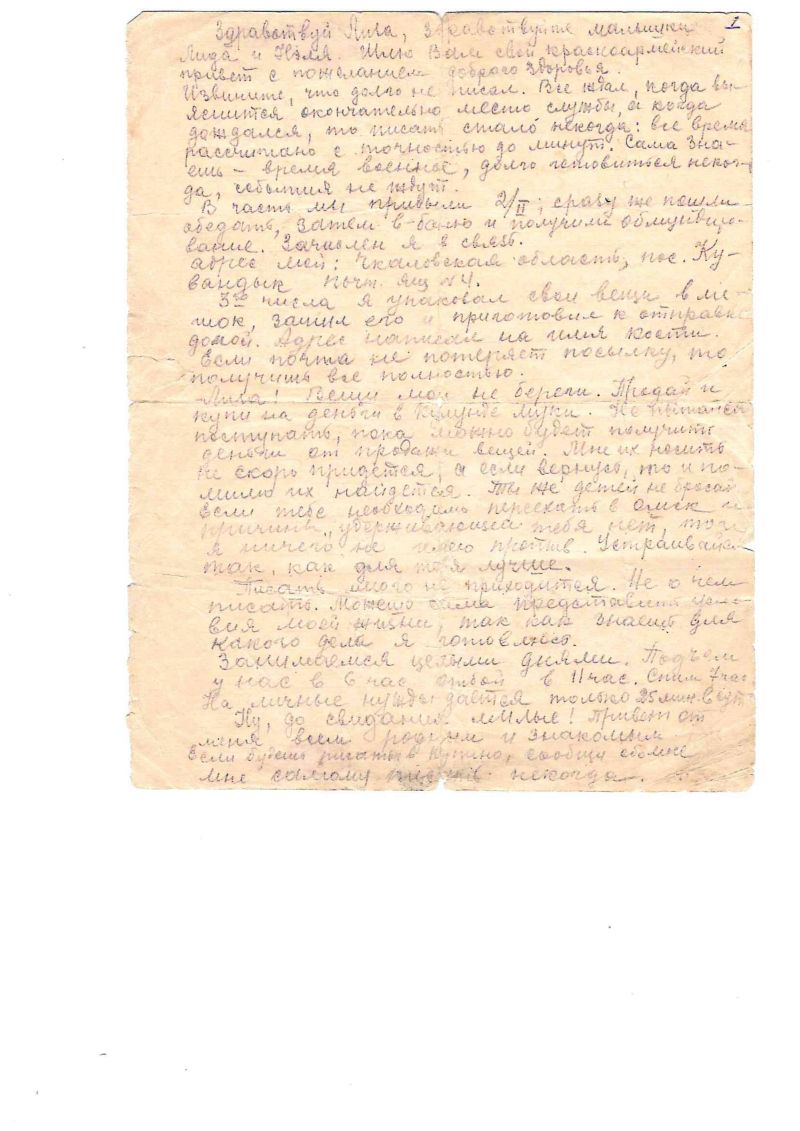 1
Здравствуй Лиза, здравствуйте малышки
Лида и Нэля. Шлю Вам свой красноармейский
привет с пожеланием доброго здоровья.
Извините, что долго не писал. Все ждал, когда вы-
яснится окончательно место службы, а когда
дождался, то писать стало некогда: все время
рассчитано с точностью до минут. Сама зна-
ешь – время военное, долго готовиться неког-
да, события не ждут.
В часть мы прибыли 2/II; сразу же пошли
обедать, затем в баню и получили обмундиро-
вание. Зачислен я в связь.
Адрес мой: Чкаловская область, пос. Ку-
вандык почт. ящ №4.
3го числа я упаковал свои вещи в ме-
шок, зашил его и приготовил к отправке
домой. Адрес написал на имя Кости.
Если почта не потеряет посылку, то
получишь все полностью.
Лиза! Вещи мои не береги. Продай и
купи на деньги в муки. Не пытайся
поступать, пока можно будет получить
деньги от продажи вещей. Мне их носить
не скоро придется, а если вернусь, то и по-
мимо их найдется. Ты же детей не бросай
Если тебе необходимо переехать в Омск и
причины, удерживающей тебя нет, то
я ничего не имею против. Устраивайся
так, как для тебя лучше.
Писать много не приходится. Не о чем
писать. Можешь сама представить усло-
вия моей жизни, так как знаешь для
какого дела я готовлюсь.
Занимаемся целыми днями. Подъем
у нас в 6 час отбой в 11 час. Спим 7 час
На личные нужды дается только 25 мин в сут
Ну, до свидания милые! Привет от
меня всем родным и знакомым
Если будешь писать в сообщи обо мне
мне самому писать некогда.